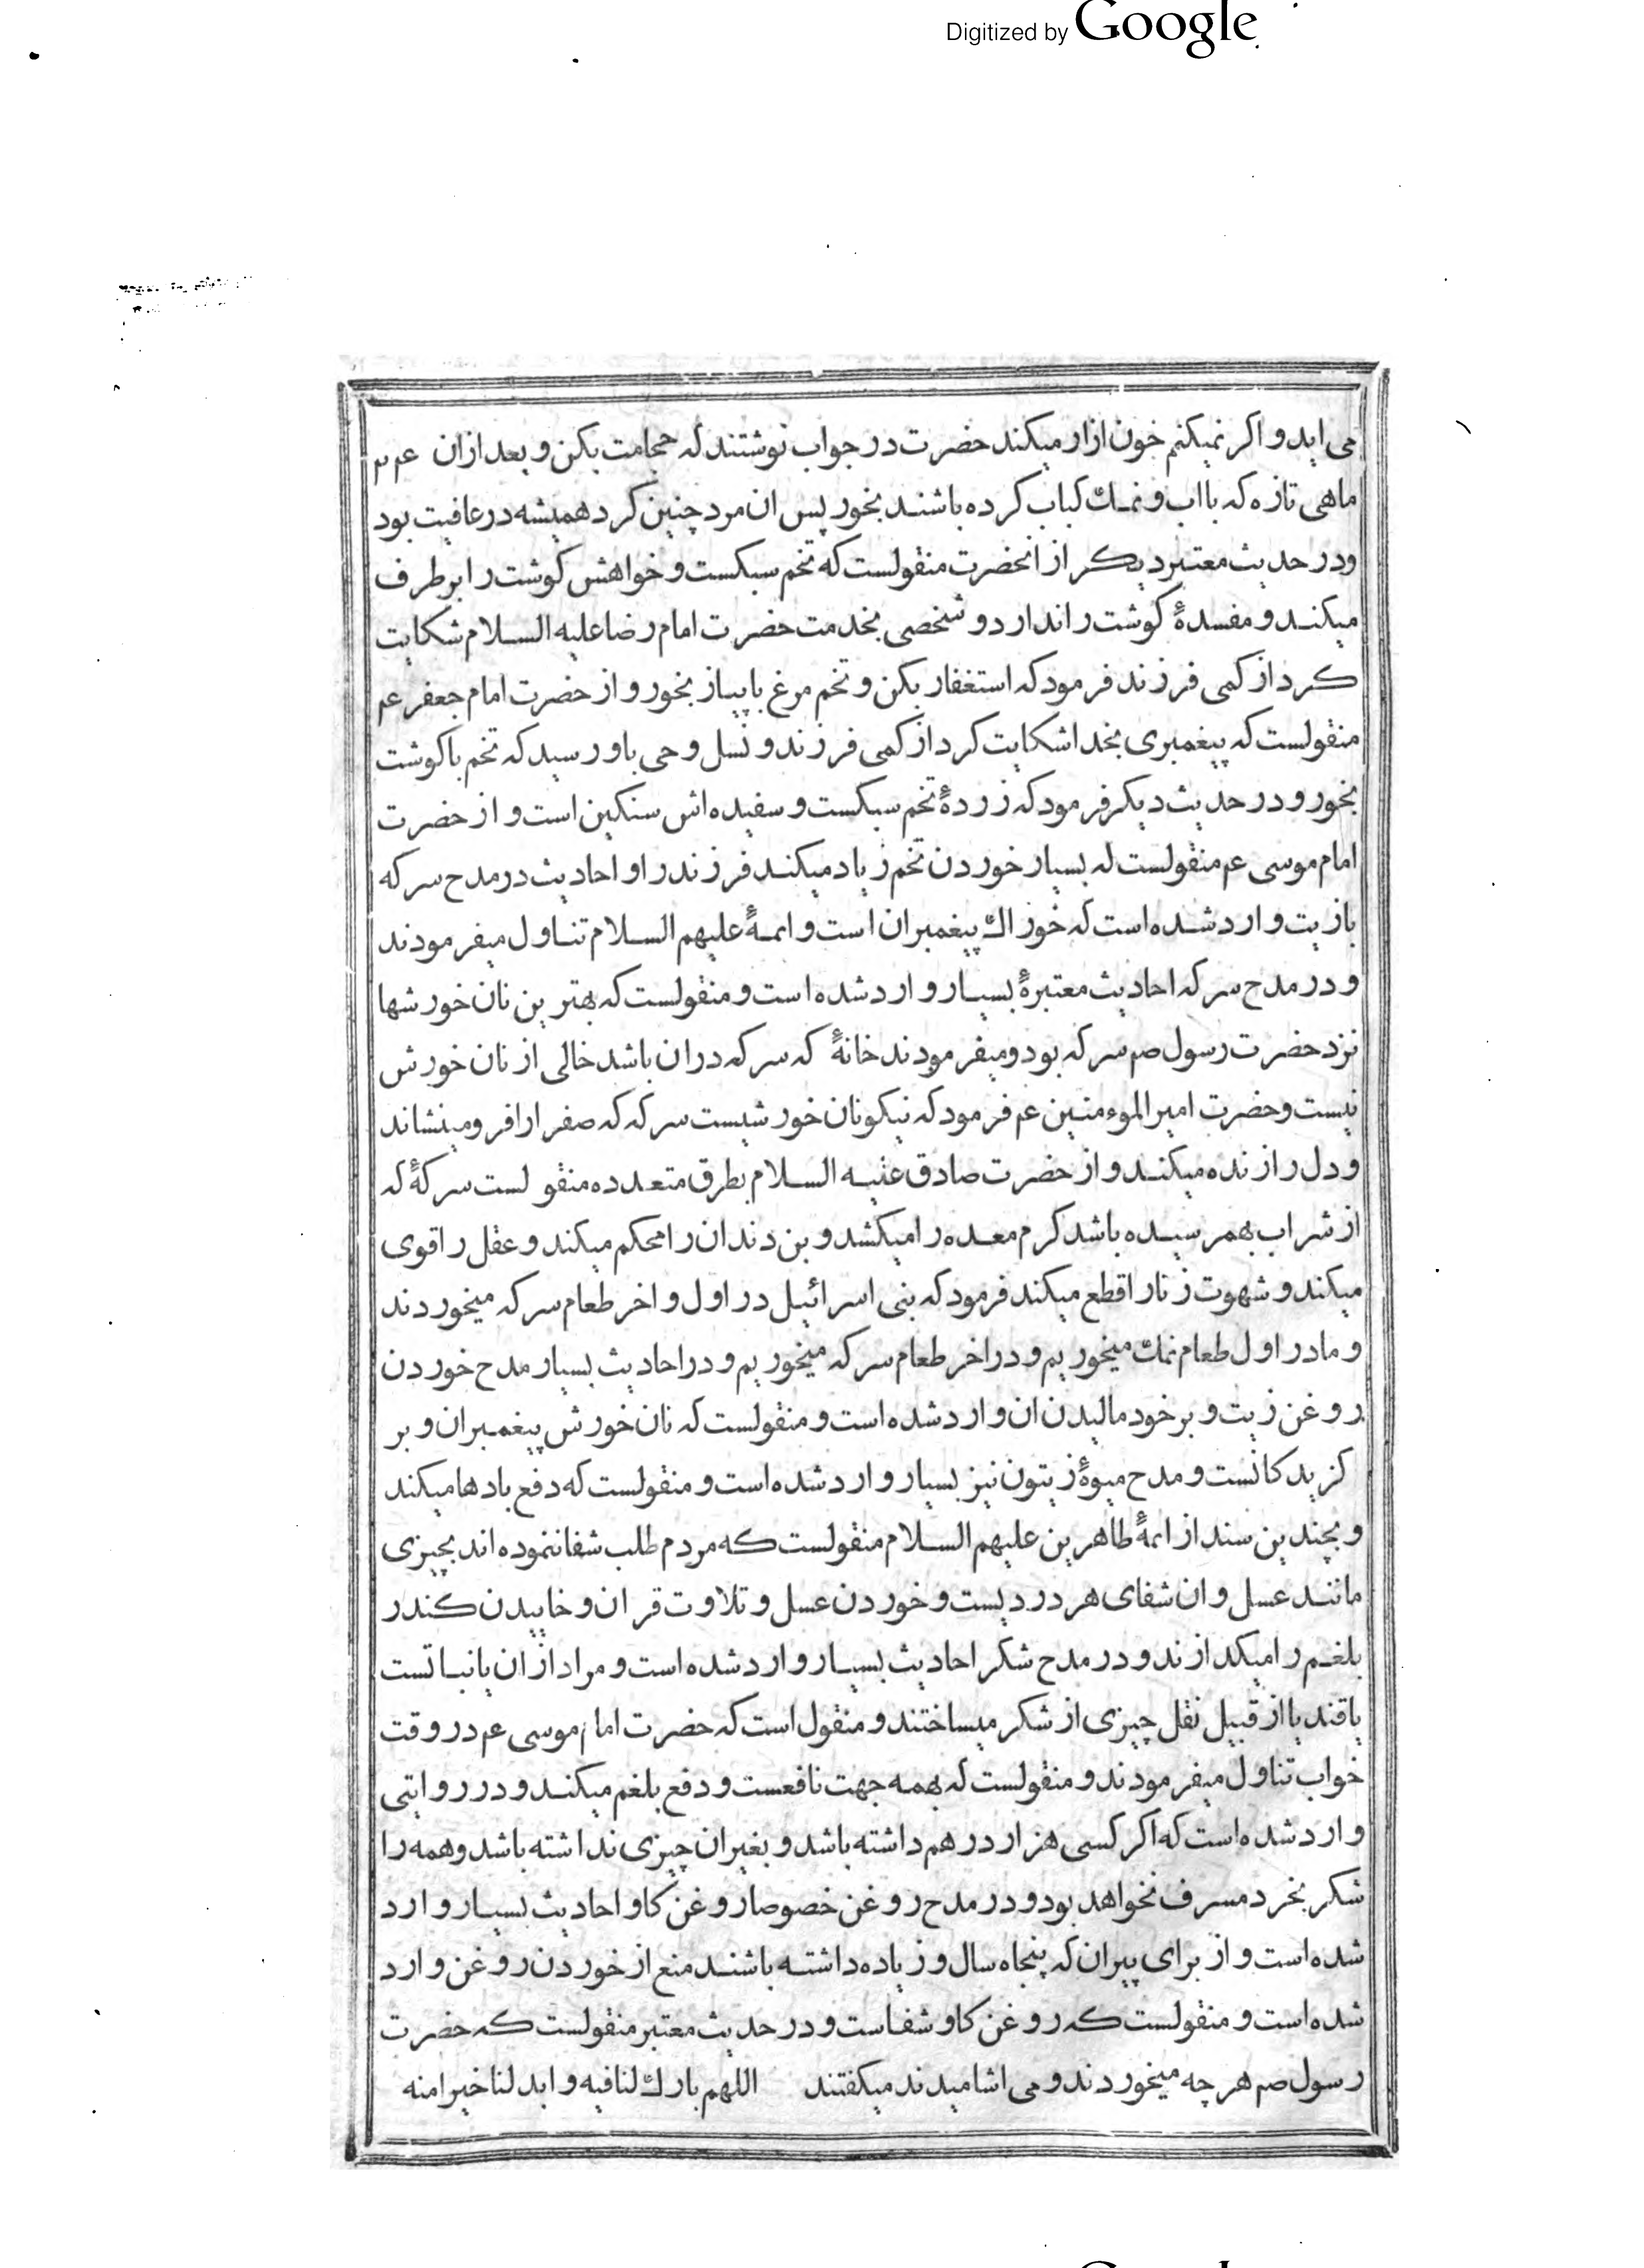 Digitized by Google
می اید و اکر نمیکنم خون ازار میکند حضرت در جواب نوشتند که حجامت بکن و بعد از ان عم م
ماهی تازه که با اب و نمك کباب کرده باشند بخور پس ان مرد چنین کرد همیشه در عافیت بود
و در حدیث معتبر دیکر از انحضرت منقولست که تخم سبکست و خواهش کوشت را برطرف
میکند و مفسدهٔ کوشت را ندارد و شخصی بخدمت حضرت امام رضا علیه السلام شکایت
کرد از کمی فرزند فرمود که استغفار بکن و تخم مرغ با پیاز بخور و از حضرت امام جعفر عم
منقولست که پیغمبری بخدا شکایت کرد از کمی فرزند و نسل وحی باو رسید که تخم با کوشت
بخور و در حدیث دیکر فرمود که زردهٔ تخم سبکست و سفیده اش سنکین است و از حضرت
امام موسی عم منقولست که بسیار خوردن تخم زیاد میکند فرزند را و احادیث در مدح سرکه
با زیت وارد شده است که خوراك پیغمبران است و ائمهٔ علیهم السلام تناول میفرمودند
و در مدح سرکه احادیث معتبرهٔ بسیار وارد شده است و منقولست که بهترین نان خورشها
نزد حضرت رسول صم سرکه بود و میفرمودند خانهٔ که سرکه دران باشد خالی از نان خورش
نیست و حضرت امیر الموءمنین عم فرمود که نیکو نان خورشیست سرکه که صفرا را فرو مینشاند
و دل را زنده میکند و از حضرت صادق علیه السلام بطرق متعدده منقو لست سرکهٔ که
از شراب بهمرسیده باشد کرم معده را میکشد و بن دندان را محکم میکند و عقل را قوی
میکند و شهوت زنا را قطع میکند فرمود که بنی اسرائیل در اول و اخر طعام سرکه میخوردند
و ما در اول طعام نمك میخوریم و در اخر طعام سرکه میخوریم و در احادیث بسیار مدح خوردن
روغن زیت و بر خود مالیدن ان وارد شده است و منقولست که نان خورش پیغمبران و بر
کزیدکانست و مدح میوهٔ زیتون نیز بسیار وارد شده است و منقولست که دفع بادها میکند
و بچندین سند از ائمهٔ طاهرین علیهم السلام منقولست که مردم طلب شفا ننموده اند بچیزی
مانند عسل و ان شفای هر دردیست و خوردن عسل و تلاوت قران و خاییدن کندر
بلغم را میکدازند و در مدح شکر احادیث بسیار وارد شده است و مراد از ان یا نباتست
یا قند یا از قبیل نقل چیزی از شکر میساختند و منقول است که حضرت امام موسی عم در وقت
خواب تناول میفرمودند و منقولست که بهمه جهت نافعست و دفع بلغم میکند و در روایتی
وارد شده است که اکر کسی هزار درهم داشته باشد و بغیر ان چیزی نداشته باشد و همه را
شکر بخرد مسرف نخواهد بود و در مدح روغن خصوصا روغن کاو احادیث بسیار وارد
شده است و از برای پیران که پنجاه سال و زیاده داشته باشند منع از خوردن روغن وارد
شده است و منقولست که روغن کاو شفاست و در حدیث معتبر منقولست که حضرت
رسول صم هر چه میخوردند و می اشامیدند میکفتند اللهم بارك لنا فیه و ابد لنا خیرا منه